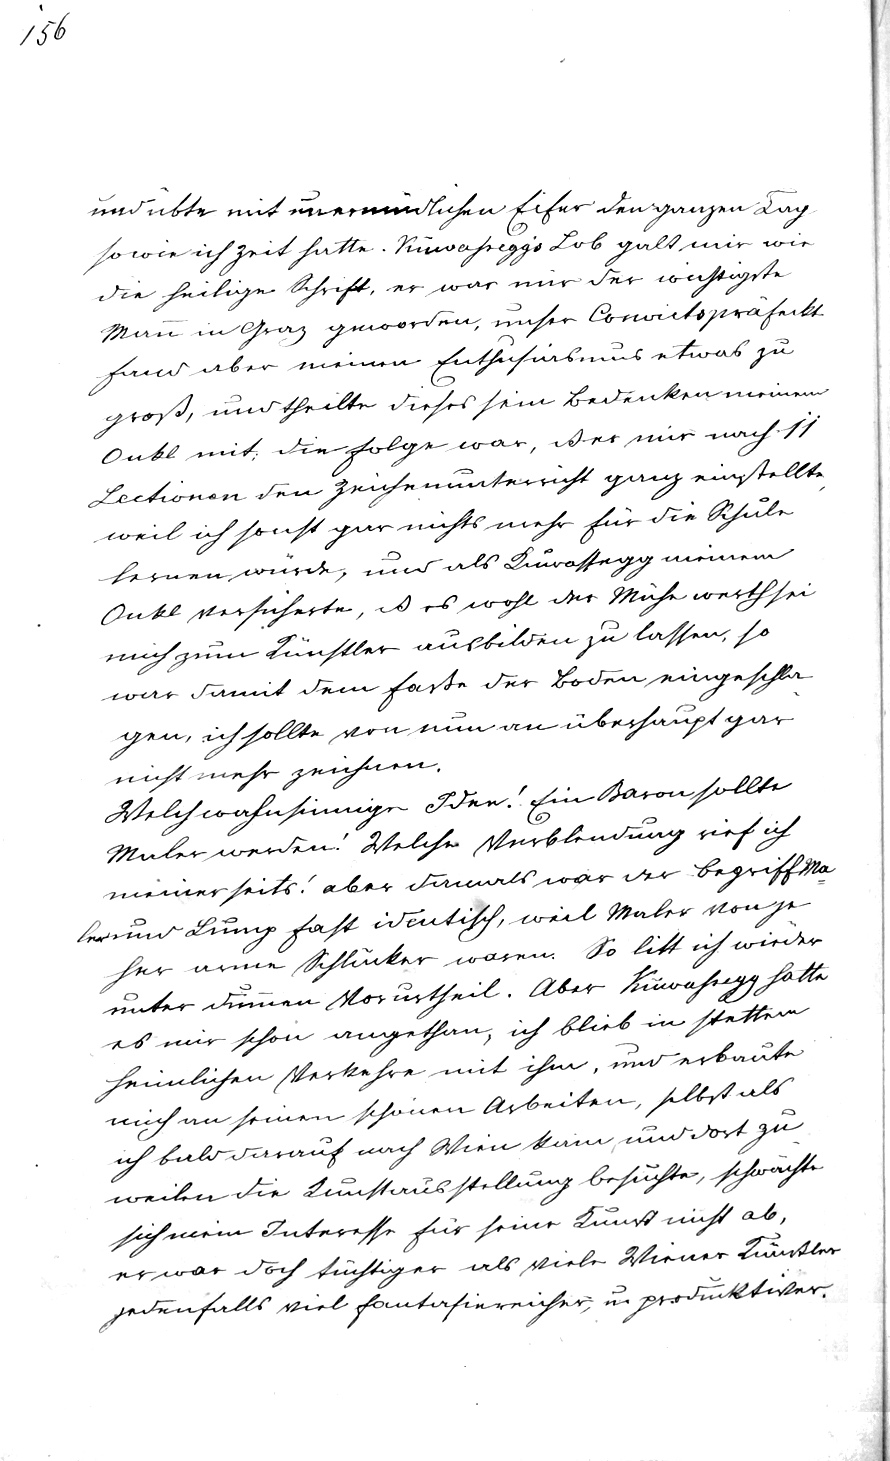 156
und übte mit unermüdlichen Eifer den ganzen Tag
sowie ich Zeit hatte. Kuwasseggs Lob galt mir wie
die heilige Schrift, er war mir der wichtigste
Mañ in Graz geworden, unser Convictspräfeckt
fand aber meinen Enthusiasmus etwas zu
groß, und theilte dieses sein Bedenken meinem
Onkl mit; die Folge war, ß er mir nach 11
Lectionen den Zeichenunterricht ganz einstellte,
weil ich sonst gar nichts mehr für die Schule
lernen würde, und als Kuwassegg meinem
Onkl versicherte, ß es wohl der Mühe werth sei
mich zum Künstler ausbilden zu lassen, so
war damit dem Faße der Boden eingeschla
gen, ich sollte von nun an überhaupt gar
nicht mehr zeichnen.
Welch wahnsinnige Idee! Ein Baron sollte
Maler werden! Welche Verblendung rief ich
meinerseits! aber damals war der Begriff Ma
ler und Lump fast identisch, weil Maler von je
her arme Schlucker waren. So litt ich wieder
unter dum̄en Vorurtheil. Aber Kuwassegg hatte
es mir schon angethan, ich blieb in stettem
heimlichen Verkehre mit ihm, und erbaute
mich an seinen schönen Arbeiten, selbst als
ich bald darauf nach Wien kam, und dort zu
weilen die Kunstausstellung besuchte, schwächte
sich mein Interesse für seine Kunst nicht ab,
er war doch tüchtiger als viele Wiener Künstler
jedenfalls viel fantasiereicher, u. produktiver.